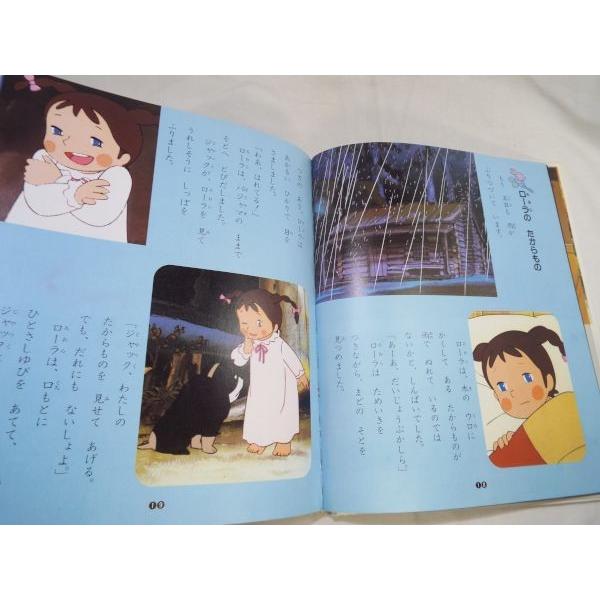 ローラの たからもの
もう、五日も 雨が
ふりつづいて います。
ローラは、木の ウロに
かくして ある たからものが
雨で ぬれて いるのでは
ないかと、しんぱいでした。
「あーあ、だいじょうぶかしら」
ローラは ためいきを
つきながら、まどの そとを
見つめました。
18
つぎの あさ、ローラは
あかるい ひかりで、目を
さましました。
「わあ、はれてる！」
ローラは、パジャマの ままで
そとへ とびだしました。
ジャックが、ローラを 見て
うれしそうに しっぽを
ふりました。
「ジャック、わたしの
たからものを 見せて あげる。
でも、だれにも ないしょよ。」
ローラは、口もとに
ひとさしゆびを あてて、
ジャックに
19